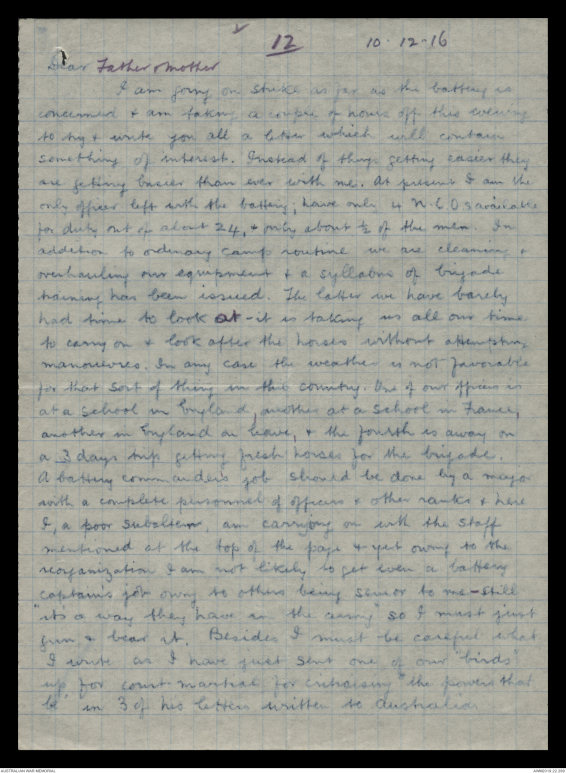 12
10-12-16
Dear Father & Mother
I am going on strike as far as the battery is
concerned & am taking a couple of hours off this evening
to try & write you all a letter which will contain
something of interest. Instead of things getting easier they
are getting busier than ever with me. At present I am the
only officer left with the battery; have only 4 N.C.Os available
for duty out of about 24, & only about ½ of the men. In
addition to ordinary camp routine we are cleaning &
overhauling our equipment & a syllabus of brigade
training has been issued. The latter we have barely
had time to look at - it is taking us all our time
to carry on & look after the horses without attempting
manoeuvres. In any case the weather is not favorable
for that sort of thing in this country. One of our officers is
at a School in England, another at a School in France,
another in England on leave, & the fourth is away on
a 3 days trip getting fresh horses for the brigade.
A battery commanders job should be done by a major
with a complete personnel of officers & other ranks & here
I, a poor subaltern, am carrying on with the staff
mentioned at the top of the page & yet owing to the
reorganization I am not likely to get even a battery
captains job owing to others being senior to me - still
"it's a way they have in the army" so I must just
grin & bear it. Besides I must be careful what
I write as I have just sent one of our "birds"
up for court-martial for criticising "the powers that
be" in 3 of his letters written to Australia
AUSTRALIAN WAR MEMORIAL